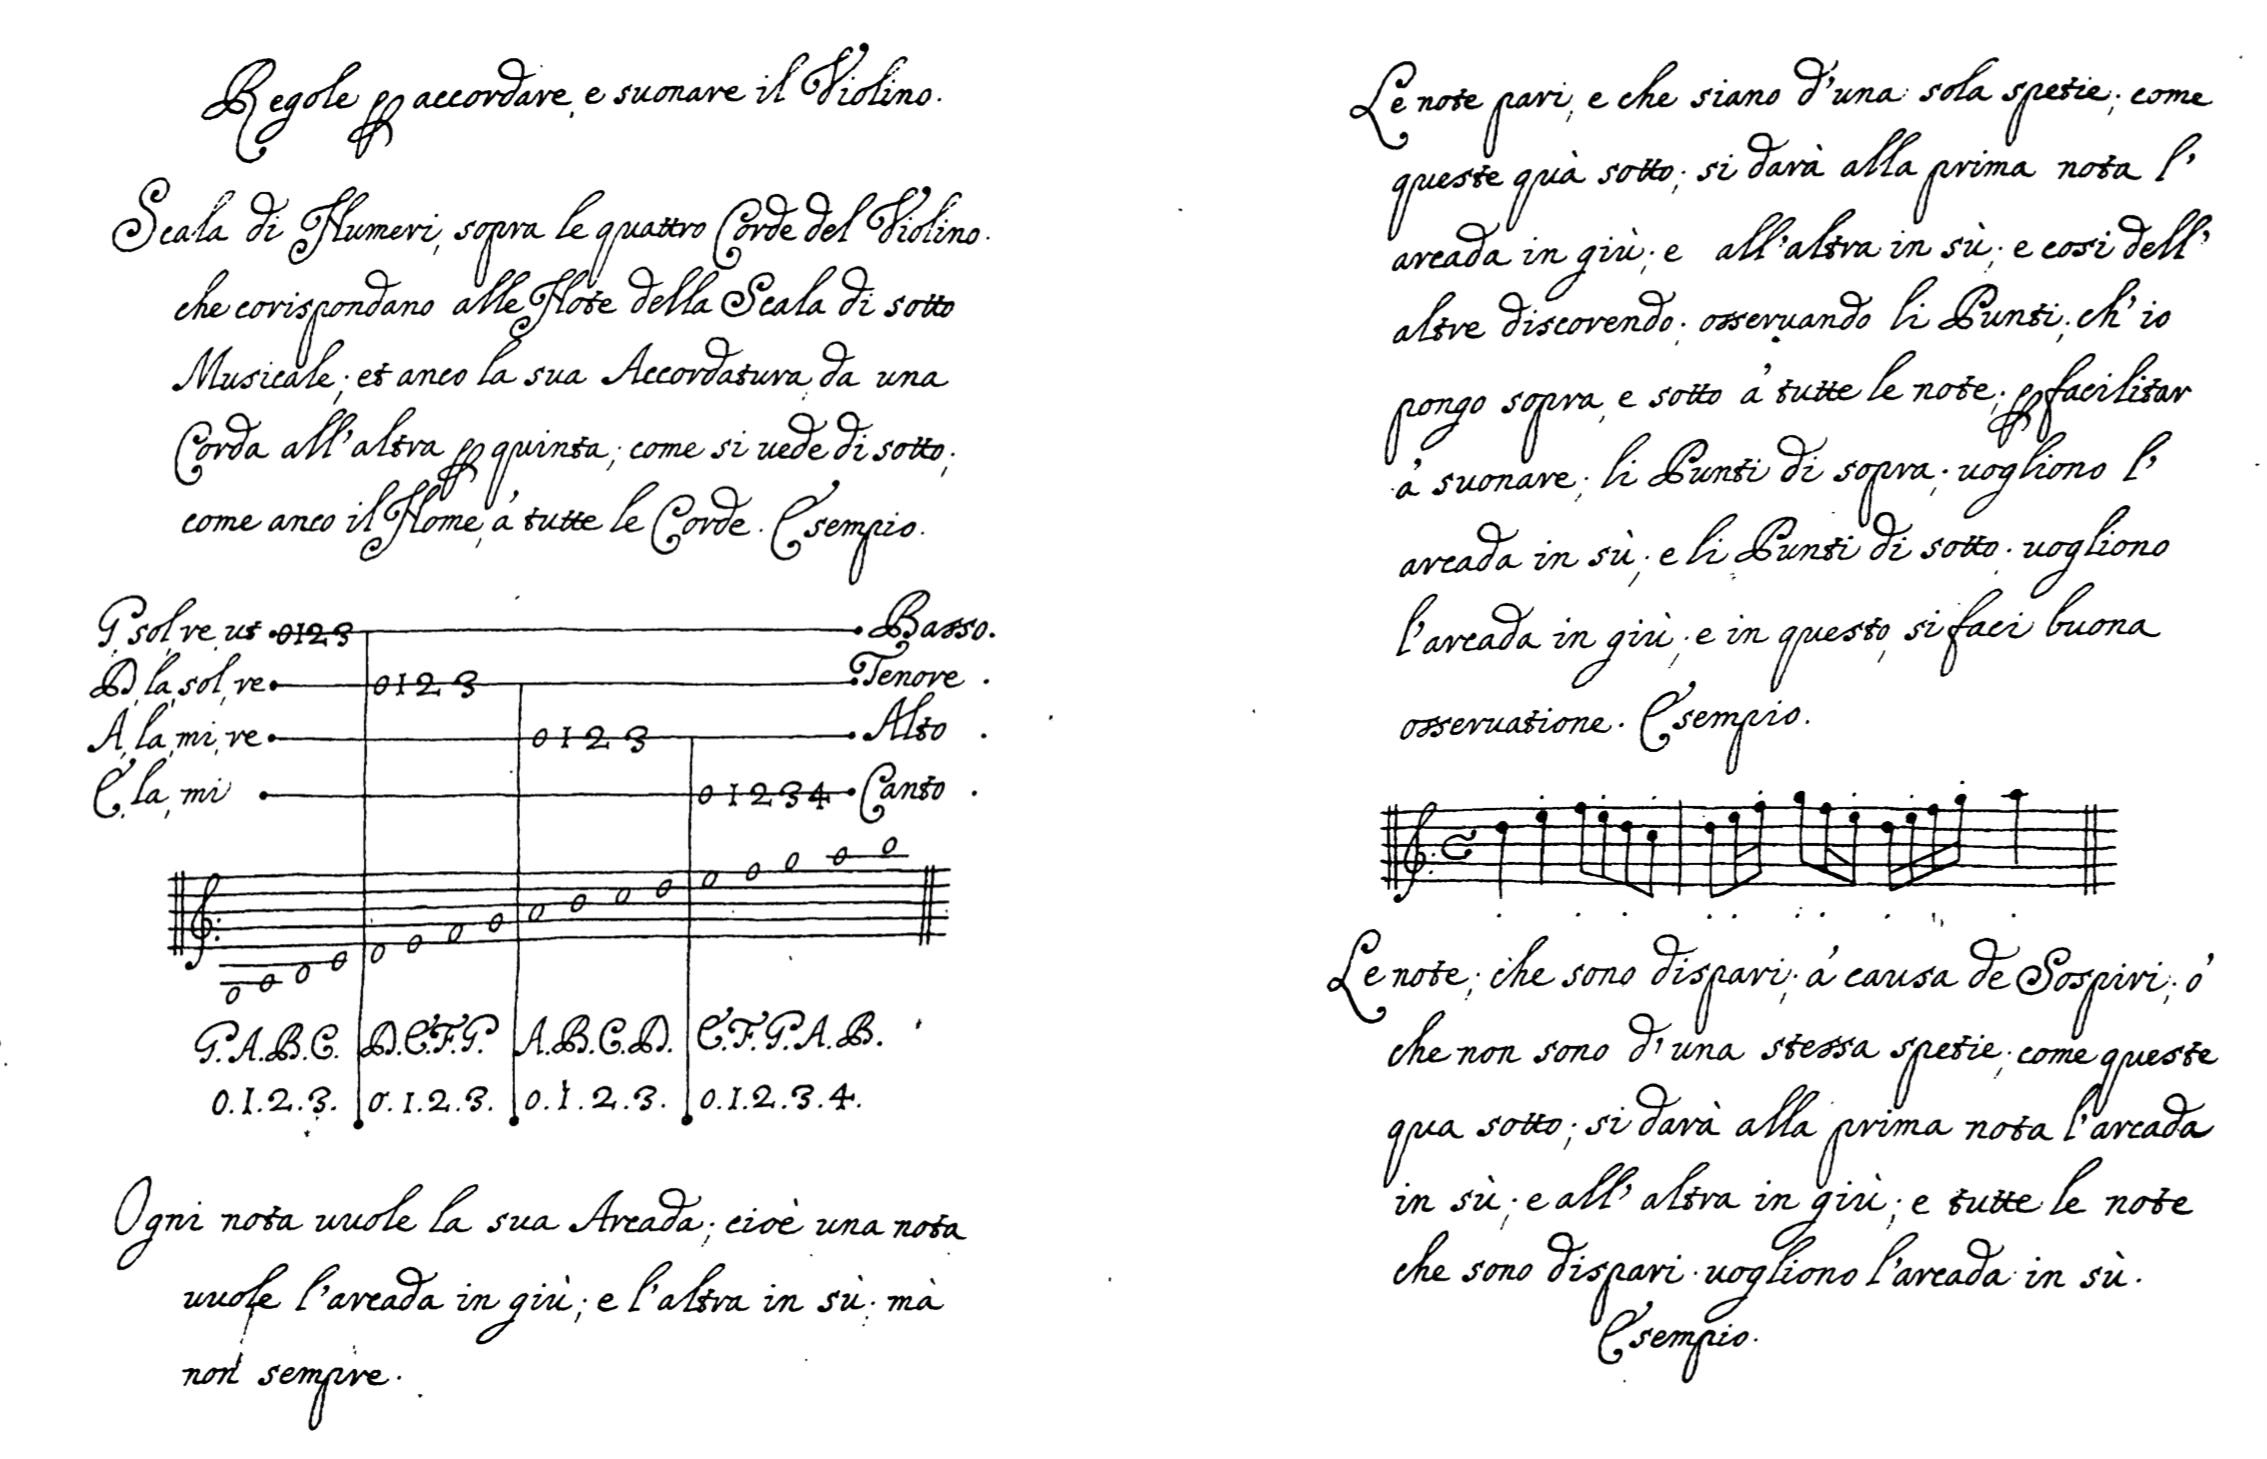 Regole p accordare, e suonare il Violino.
Scala di Numeri, sopra le quattro Corde del Violino.
che corispondano alle Note della Scala di sotto
Musicale; et anco la sua Accordatura, da una
Corda all'altra p quinta; come si uede di sotto;
come anco il Nome, á tutte le Corde. Esempio.
G, sol, re, ut 0123 Basso.
D, la, sol, re 0123 Tenore.
A, la, mi, re 0123 Alto.
E, la, mi 01234 Canto.
G.A.B.C. D.E.F.G. A.B.C.D. E.F.G.A.B.
0.1.2.3. 0.1.2.3. 0.1.2.3. 0.1.2.3.4.
Ogni nota uuole la sua Arcada; cioè una nota
uuole l'arcada in giù; e l'altra in sù; mà
non sempre.
Le note pari, e che siano d'una sola spetie; come
queste quà sotto; si darà alla prima nota l'
arcada in giù; e all'altra in sù; e cosi dell'
altre discorendo; osseruando li Punti; ch'io
pongo sopra, e sotto á tutte le note; p facilitar
á suonare; li Punti di sopra; uogliono l'
arcada in sù; e li Punti di sotto; uogliono
l'arcada in giù; e in questo, si faci buona
osseruatione. Esempio.
Le note; che sono dispari; á causa de Sospiri; ó
che non sono d'una stessa spetie; come queste
qua sotto; si darà alla prima nota l'arcada
in sù; e all'altra in giù; e tutte le note
che sono dispari uogliono l'arcada in sù.
Esempio.